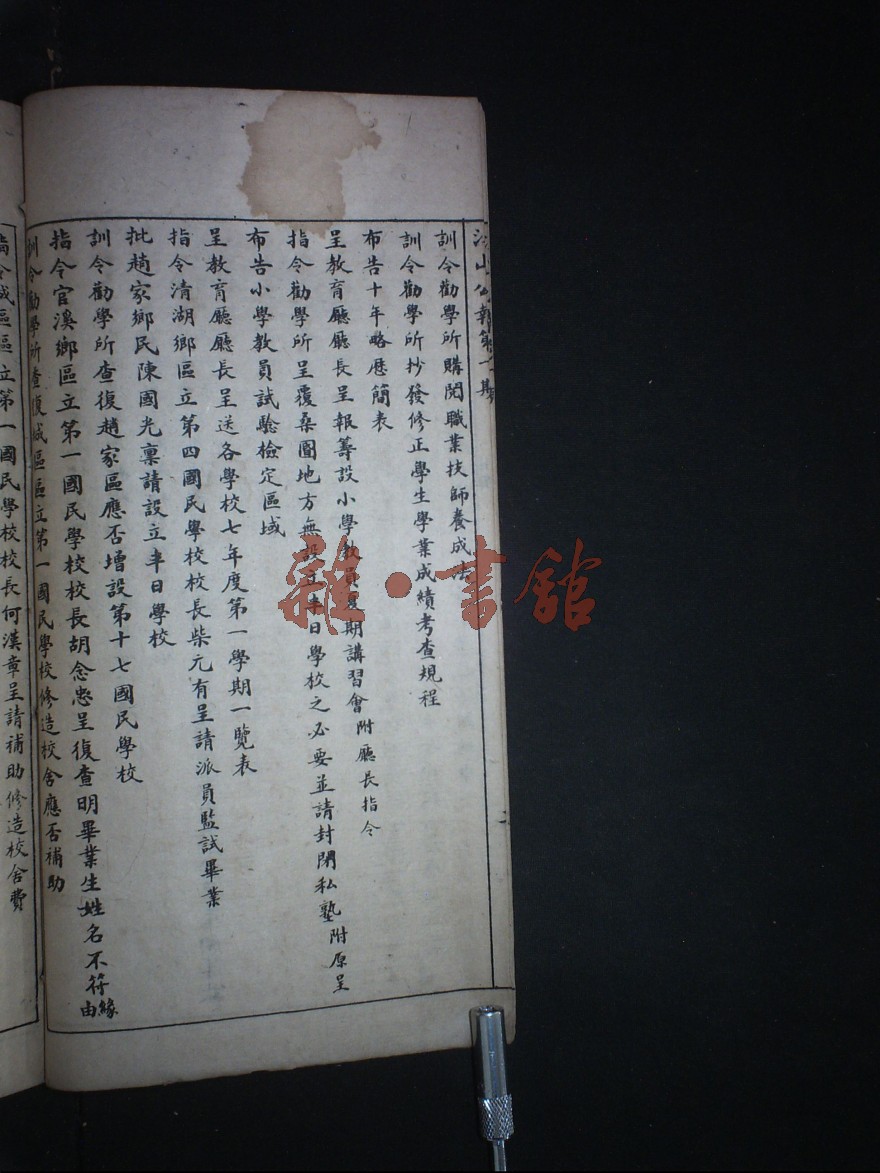 江山公報第二期
訓令勸學所購閱職業技師養成法
訓令勸學所抄發修正學生學業成績考查規程
布告十年略歷簡表
呈教育廳廳長呈報籌設小學教員夏期講習會附廳長指令
指令勸學所呈覆桑園地方無設立半日學校之必要並請封閉私塾附原呈
布告小學教員試驗檢定區域
呈教育廳廳長呈送各學校七年度第一學期一覽表
指令清湖鄉區立第四國民學校校長柴元有呈請派員監試畢業
批趙家鄉民陳國光稟請設立半日學校
訓令勸學所查復趙家區應否增設第十七國民學校
指令官溪鄉區立第一國民學校校長胡念悫呈復查明畢業生姓名不符緣由
訓令勸學所查復城區區立第一國民學校修造校舍應否補助
指令城區區立第一國民學校校長何漢章呈請補助修造校舍費
雜·書館